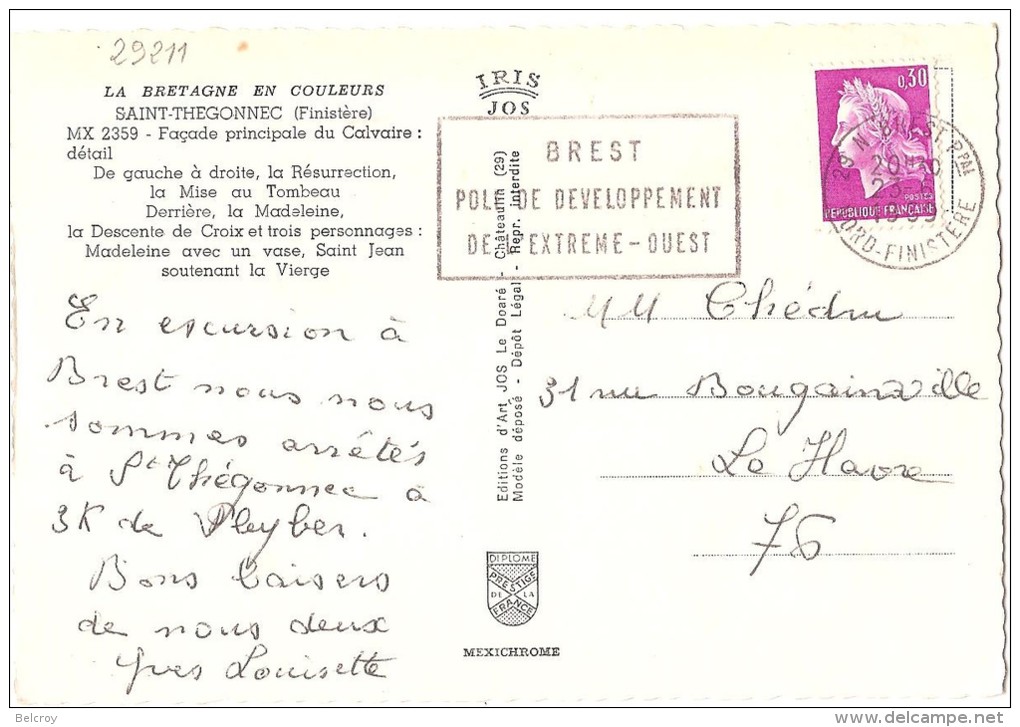 29211
LA BRETAGNE EN COULEURS
SAINT-THEGONNEC (Finistère)
MX 2359 - Façade principale du Calvaire :
détail
De gauche à droite, la Résurrection,
la Mise au Tombeau
Derrière, la Madeleine,
la Descente de Croix et trois personnages :
Madeleine avec un vase, Saint Jean
soutenant la Vierge
En excursion à
Brest nous nous
sommes arrêtés
à St Thégonnec à
3K de Pleyber.
Bons baisers
de nous deux
Yves Louisette
IRIS
JOS
Editions d'Art JOS Le Doaré - Châteaulin (29)
Modèle déposé - Dépôt Légal - Repr. interdite
DIPLOME
PRESTIGE
DE LA
FRANCE
MEXICHROME
BREST
POLE DE DEVELOPPEMENT
DE L'EXTREME-OUEST
0,30
POSTES
REPUBLIQUE FRANCAISE
NORD-FINISTERE
MM Chédru
31 rue Bougainville
Le Havre
76
Belcroy
http://www.delcampe.net